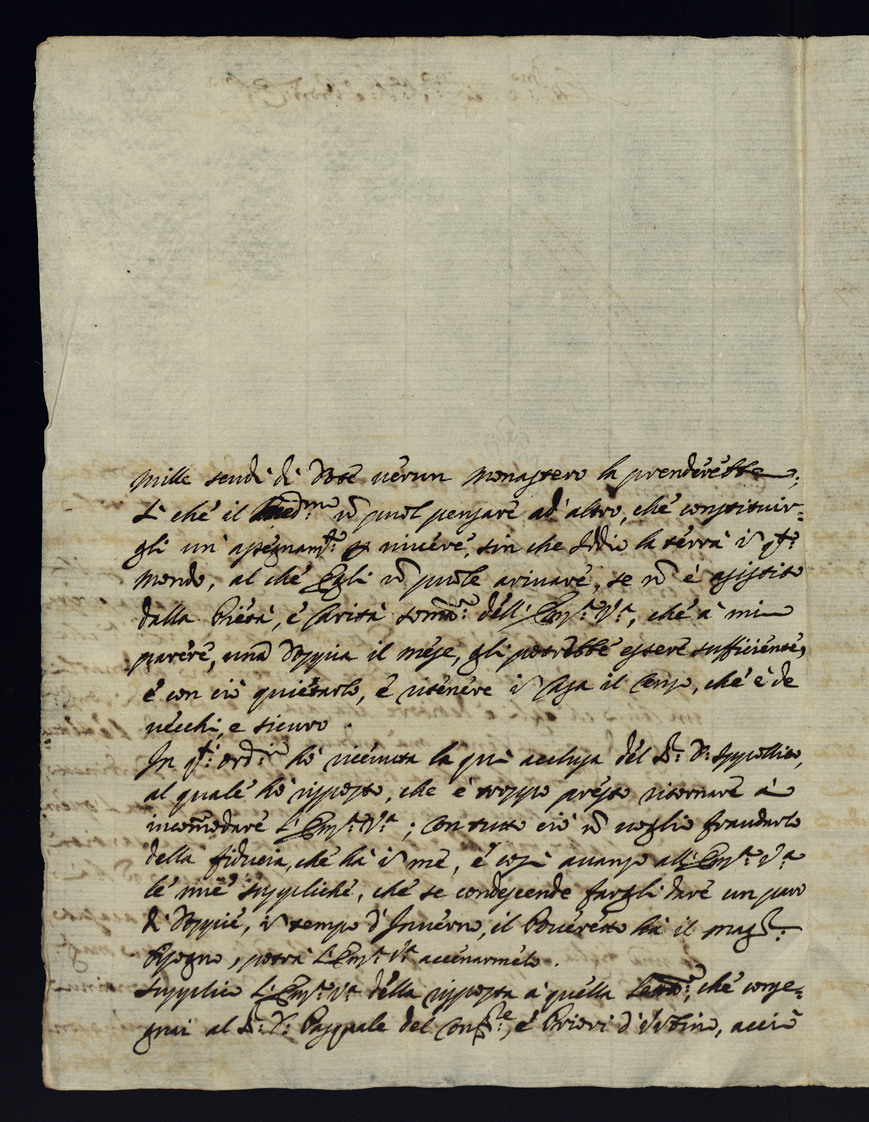 mille scudi di Dote verun Monastero la prenderebbe;
Si che il med:mo nō puol pensare ad'altro, che constituir=
gli un'assegnam:to p vivere, sin che Iddio la terrà i q:to
Mondo, al che Egli nō puole arivare, se nō è assistito
dalla Pietà, e Carità somā: dell'Em:a V:a, che à mio
parere, una Doppia il mese, gli potrebbe essere sufficiente,
e con ciò quietarlo, e ritenere i Casa il Censo, che è de
vecchi, e sicuro.
In q:to ord:rio hò ricevuta la quì acclusa del S:r D: Ippollito,
al quale hò risposto, che è troppo presto ritornare à
incōmodare l'Em:a V:a; con tutto ciò nō voglio fraudarlo
della fiducia, che hà i me, e così avanzo all'Em:a V:a
le mie suppliche, che se condescende fargli dare un paro
di Doppie, i tempo d'Inverno, il Poveretto hà il mag:r
bisogno, potrà l'Em:a V:a accenarmelo.
Supplico l'Em:a V:a della risposta à quella lettera, che conse=
gnai al S:r D: Pasquale del e Priori d'Urbino, acciò